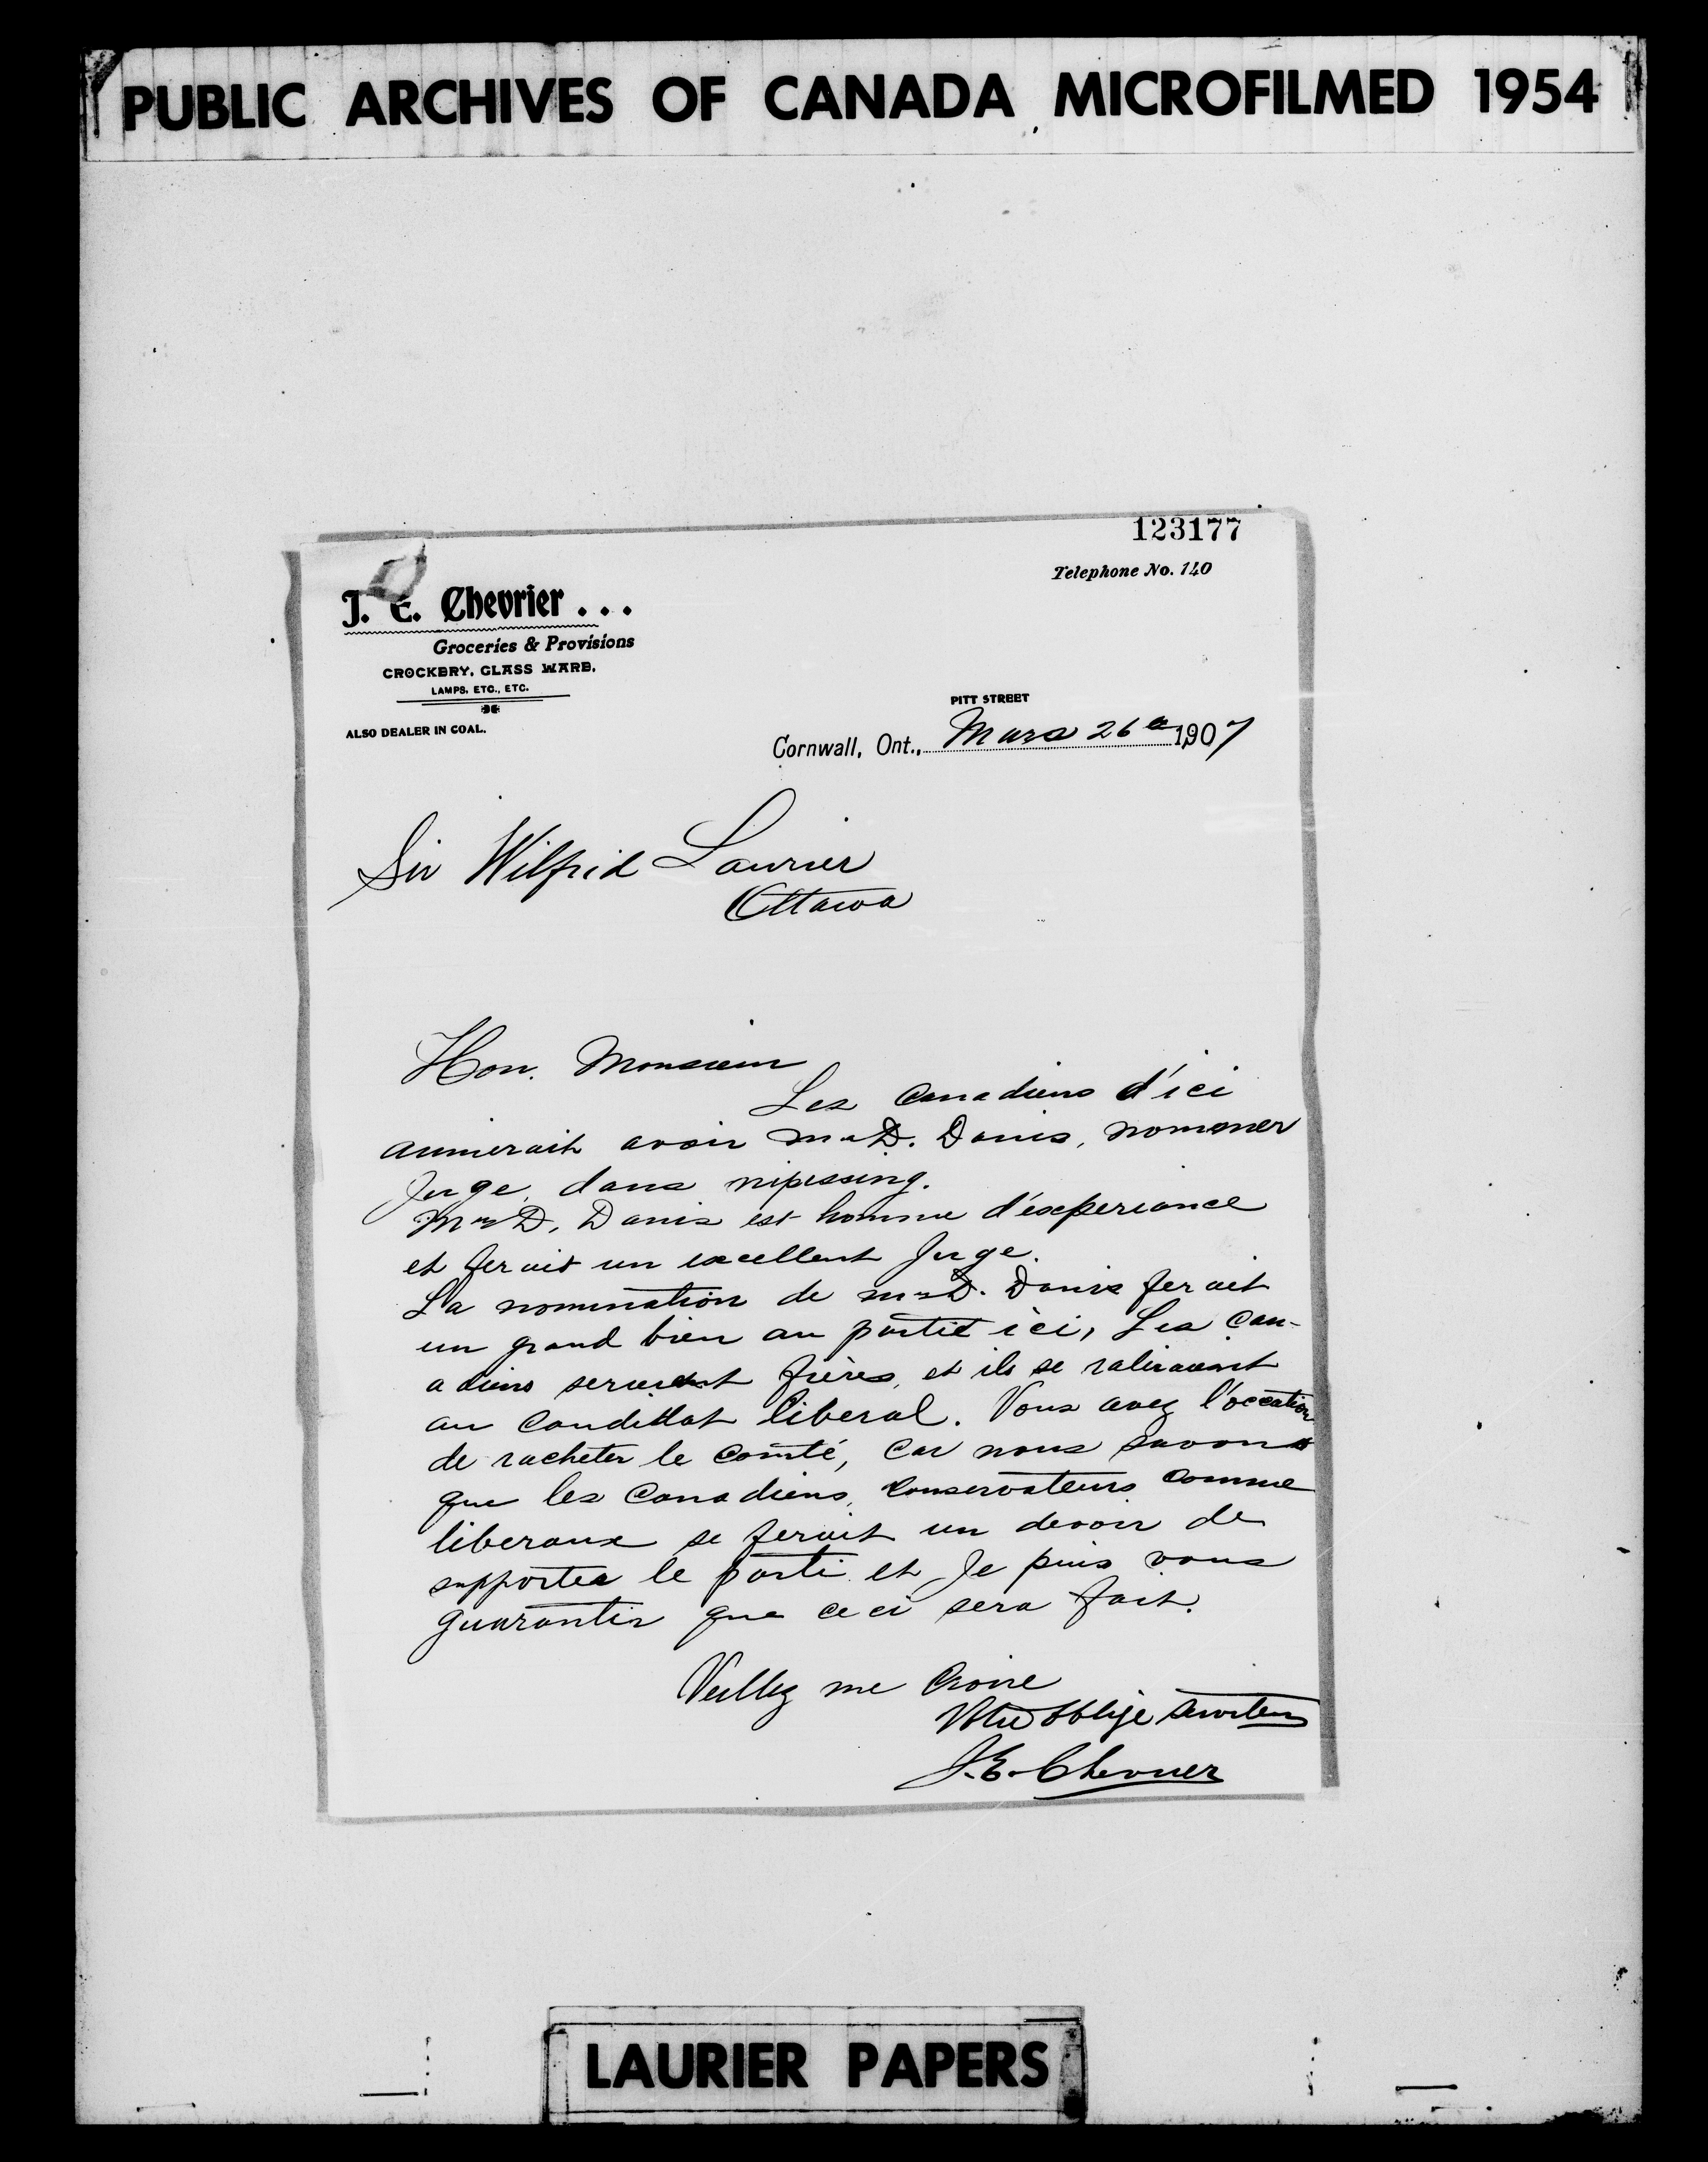 PUBLIC ARCHIVES OF CANADA MICROFILMED 1954
123177
Telephone No. 140
J. E. Chevrier ...
Groceries & Provisions
CROCKERY, GLASS WARE,
LAMPS, ETC., ETC.
ALSO DEALER IN COAL.
PITT STREET
Cornwall, Ont., Mars 26e 1907
Sir Wilfrid Laurier
Ottawa
Hon. Monsieur
Les Canadiens d'ici
aimerait avoir Mr D. Danis, nommer
Juge, dans nipissing.
Mr D. Danis est homme d'experiance
et ferait un excellent Juge.
La nomination de Mr D. Danis ferait
un grand bien au partie ici, Les Can-
adiens seraient fières, et ils se raliraient
au candidat liberal. Vous avez l'occation
de racheter le comté, car nous savons
que les Canadiens, conservateurs comme
liberaux se ferait un devoir de
supporter le parti et Je puis vous
guarantir que ceci sera fait.
Veillez me Croire
Votre oblige serviteur
J.E. Chevrier
LAURIER PAPERS